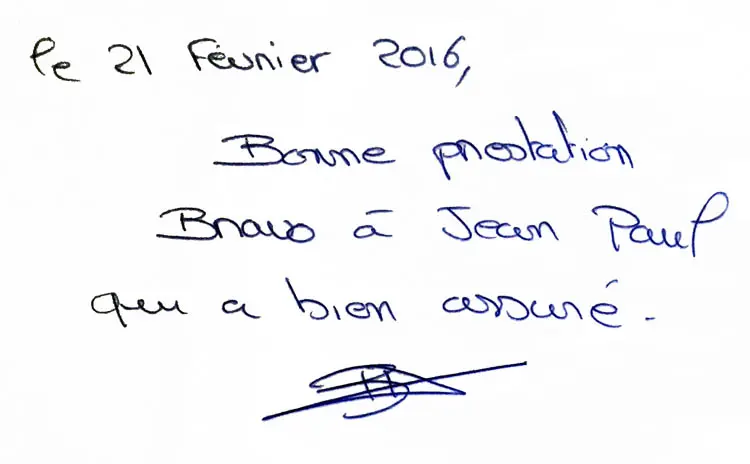 le 21 Février 2016,
Bonne prestation
Bravo à Jean Paul
qui a bien assuré.